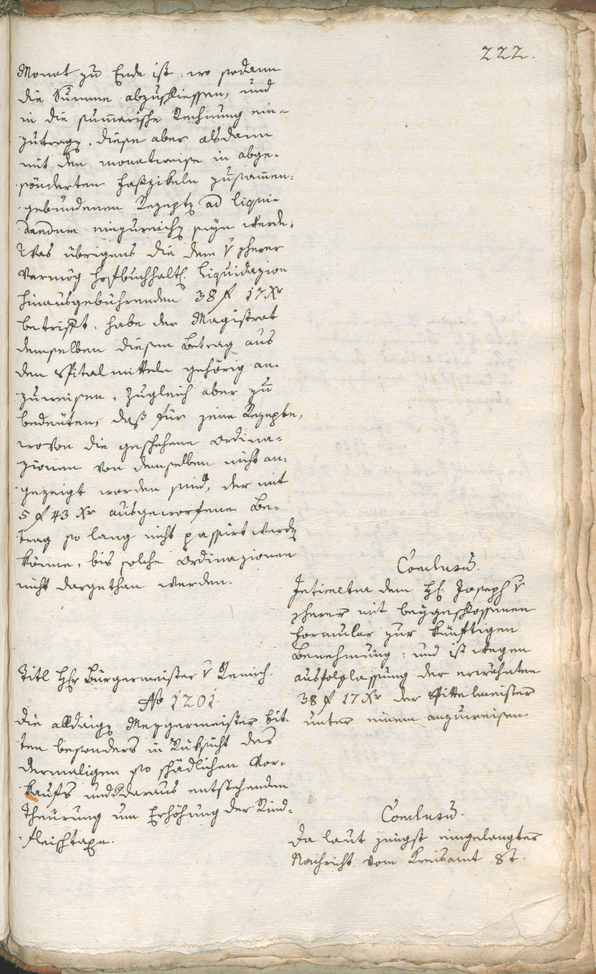 222.
Monat zu Ende ist, wo sodann
die Summe abzuschliessen, und
in die sumarische Rechnung ein-
zutragen, diese aber alsdann
mit den monatweise in abge-
sönderten Faszikeln zusamen-
gebundenen Rezepten ad liqui-
dandum einzureichen seyn werde.
Was übrigens die dem v
vermög hofbuchhalt. Liquidazion
hinausgebührenden 38 f 17 xr
betrift, habe der Magistrat
demselben diesen Betrag aus
den Spitalmitteln gehörig an-
zuweisen, zugleich aber zu
bedeuten, daß für jene Rezepte,
wovon die geschehene Ordina-
zionen von demselben nicht an-
gezeigt worden sind, der mit
5 f 43 xr ausgeworfene Be-
trag so lang nicht passirt werden
könne, bis solche Ordinazionen
nicht dargethan werden.
Conclusum.
Intimetur dem H. Joseph v
mit beygeschlossenen
Formular zur künftigen
Benehmung; und ist wegen
ausfolglassung der erwähnten
38 f 17 xr der Spittelmeister
unter einem anzuweisen.
Titl Hr Bürgermeister v
No 1201
Die alldaigen Mezgermeister bit-
ten besonders in Rüksicht des
dermaligen so schädlichen Vor-
kaufs und daraus entstehenden
Theurung um Erhöhung der Rind-
fleischtaxe.
Conclusum.
Da laut jüngst eingelangter
Nachricht vom Kreisamt St.